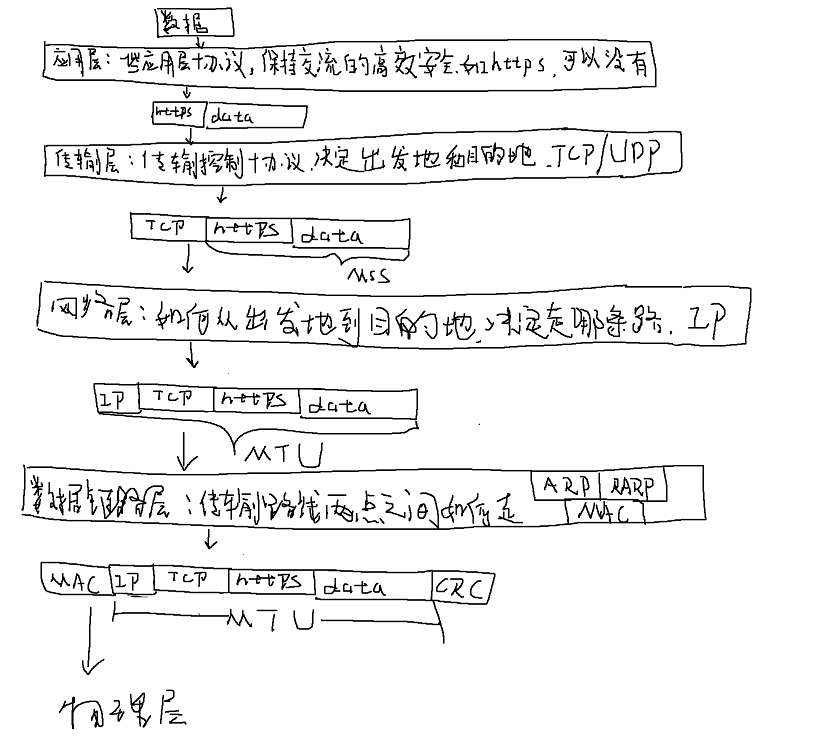 数据
应用层：些应用层协议，保持交流的高效安全.如https.可以没有
https data
传输层：传输控制协议.决定出发地和目的地.TCP/UDP
TCP https data
MSS
网络层：如何从出发地到目的地，决定走哪条路.IP
IP TCP https data
MTU
数据链路层：传输路线两点之间如何走 ARP RARP
MAC
MAC IP TCP https data CRC
MTU
物理层